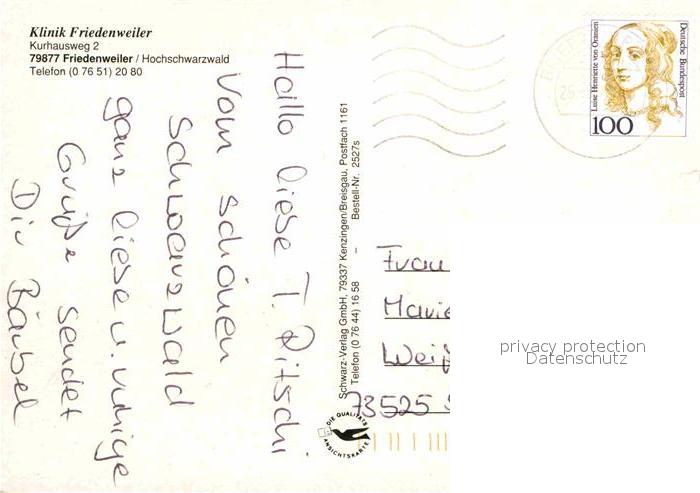 Klinik Friedenweiler
Kurhausweg 2
79877 Friedenweiler / Hochschwarzwald
Telefon (0 76 51) 20 80
Hallo liese T. Pitschi
vom schönen
Schwarzwald
ganz liese u. ruhige
Grüße sendet
Dir Bärbel
Schwarz-Verlag GmbH, 79337 Kenzingen/Breisgau, Postfach 1161
Telefon (0 76 44) 16 58 – Bestell-Nr. 2527s
DIE QUALITÄTS
ANSICHTSKARTE
Luise Henriette von Oranien
Deutsche Bundespost
100
Frau
Marie
Weiß
73525
privacy protection
Datenschutz